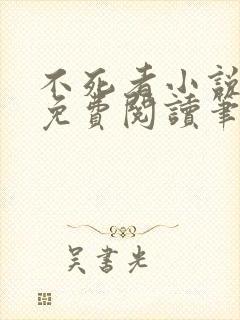 不死者小說
免費閱讀筆
吳書光